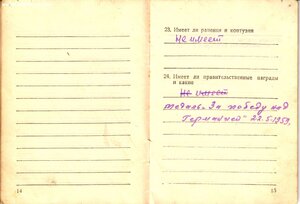 23. Имеет ли ранения и контузии
Не имеет
24. Имеет ли правительственные награды
и какие
Не имеет
медаль "За победу над
Германией" 22.5.1959.
14
15